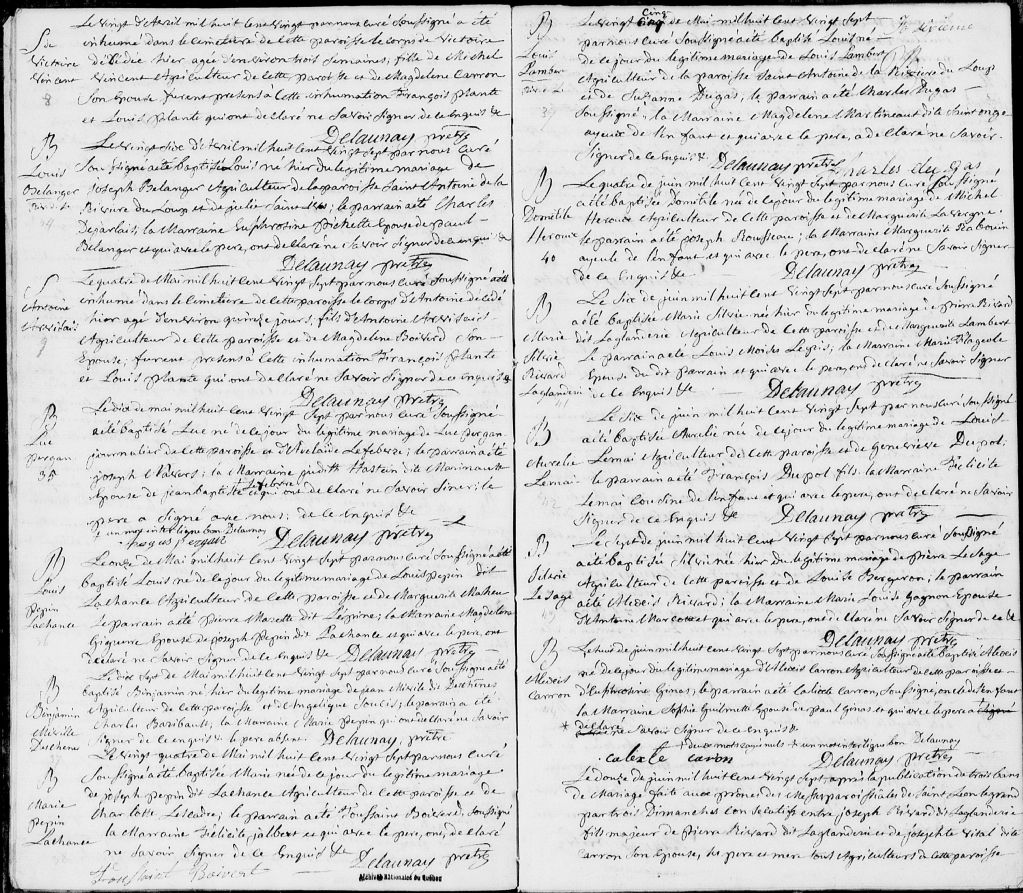 S de
Victoire
Vincent
8
Le vingt d'Avril mil huit cent vingt par nous curé soussigné a été
inhumé dans le cimetiere de cette paroisse le corps de Victoire
décédée hier agée d'environ trois semaines, fille de Michel
Vincent Agriculteur de cette paroisse et de Magdelene Carron
Son Epouse furent presens a cette inhumation François plante
et Louis plante qui ont declaré ne Savoir Signer de ce enquis &
Delaunay prêtre
B
Louis
Belanger
Riv. du L.
Le vingt six d'Avril mil huit cent vingt sept par nous curé
Soussigné a été baptisé Louis né hier du legitime mariage de
Joseph Belanger Agriculteur de la paroisse Saint Antoine de la
Riviere du Loup et de julie Saint ; le parrain a été Charles
Dejarlais; la Marraine Euphrosine pichette Epouse de paul
Belanger et qui avec le pere, ont declaré ne Savoir Signer de ce enquis &
Delaunay prêtre
S
Antoine
Arvisais
9
Le quatre de Mai mil huit cent vingt sept par nous curé Soussigné a été
inhumé dans le cimetiere de cette paroisse le corps d'Antoine décédé
hier agé d'environ quinze jours, fils d'Antoine Arvisais
Agriculteur de cette paroisse et de Magdelene Boisvord Son
Epouse; furent presens a cette inhumation François plante
et Louis plante qui ont declaré ne Savoir Signer de ce enquis &
Delaunay prêtre
B
Luc
pergan
35
Le dix de mai mil huit cent vingt sept par nous curé Soussigné
a été baptisé Luc né de ce jour du legitime mariage de Luc pergan
journalier de cette paroisse et d'Adelaide Lefebvre; le parrain a été
joseph ; la Marraine judith dite
Epouse de jean baptiste Lefebvre et qui ont declaré ne Savoir Siner; le
pere a Signé avec nous; de ce Enquis &
+ un mot interligne bon Delaunay
Delaunay prêtre
B
Louis
pepin
Lachance
Le onze de Mai mil huit cent vingt sept par nous curé Soussigné a été
baptisé Louis né de ce jour du legitime mariage de Louis pepin dit
Lachance Agriculteur de cette paroisse et de Marguerite Maheu
Le parrain a été pierre Marette dit Lepine; la Marraine Magdelene
Giguerre Epouse de joseph pepin dit Lachance et qui avec le pere, ont
declaré ne Savoir Signer de ce Enquis & Delaunay prêtre
B
Benjamin
Miville
Duchene
Le dix Sept de Mai mil huit cent vingt Sept par nous curé Soussigné a été
baptisé Binjamin né hier du legitime mariage de jean Mivile dit Deschênes
Agriculteur de cette paroisse et d'Angelique Soucis; le parrain a été
Charles Baribault; la Marraine Marie pepin qui ont declaré ne Savoir
Signer de ce enquis & le pere absent. Delaunay, prêtre
B
Marie
pepin
Lachance
Le vingt quatre de Mai mil huit cent vingt Sept par nous curé
Soussigné a été baptisée Marie née de ce jour du legitime mariage
de joseph pepin dit Lachance Agriculteur de cette paroisse et de
Charlotte Lescadre; le parrain a été Toussaint Boisverd, Soussigné
la Marraine Félicité jalbert et qui avec le pere, ont, declaré
ne Savoir Signer de ce Enquis & Delaunay prêtre
Toussaint Boivert
Archives Nationales du Québec
B
Louis
Lambert
Riv. du L.
Le vingt Cinq de Mai mil huit Cent vingt Sept
par nous curé Soussigné a été baptisé Louis né
de ce jour du legitime mariage de Louis Lambert
Agriculteur de la paroisse Saint Antoine de la Riviere du Loup
et de Suzanne Dugas; le parrain a été Charles Dugas
Soussigné; la Marraine Magdelene Martineau dite Saint onge
ayeux de l'enfant et qui avec le pere, a declaré ne Savoir
Signer de ce Enquis & Delaunay prêtre Charles dugas
B
Domitile
Heroux
40
Le quatre de juin mil huit Cent vingt Sept par nous curé Soussigné
a été baptisée Domitile née de ce jour du legitime mariage de Michel
Heroux Agriculteur de Cette paroisse et de Marguerite Lavergne
le parrain a été joseph Rousseau; la Marraine Marguerite Seabouin
ayeule de l'enfant et qui avec le pere, ont declaré ne Savoir Signer
de ce Enquis & Delaunay prêtre
B
Marie
Silvie
Rivard
Laglanderie
Le Six de juin mil huit Cent vingt Sept par nous curé Soussigné
a été baptisée Marie Silvie née hier du legitime mariage de pierre Rivard
dit Laglanerie Agriculteur de Cette paroisse et de Marguerite Lambert
Le parrain a été Louis Moïses Legris; la Marraine Marie Flageole
Epouse du dit parrain et qui avec le pere, ont declaré ne Savoir Signer
de ce Enquis & Delaunay prêtre
B
Aurelie
Lemai
Le Six de juin mil huit Cent vingt Sept par nous curé Soussigné
a été baptisée Aurelie née de ce jour du legitime mariage de Louis
Lemai Agriculteur de Cette paroisse et de Genevieve Dupol;
le parrain a été François Dupol fils; la Marraine Félicité
Lemai Cousine de l'enfant et qui avec le pere, ont declaré ne Savoir
Signer de ce Enquis & Delaunay prêtre
B
Le Sage
Le Sept de juin mil huit Cent vingt Sept par nous curé Soussigné
a été baptisée née hier du legitime mariage de pierre Le Sage
Agriculteur de Cette paroisse et de Louise Bergeron; le parrain
a été Alexis Rivard; la Marraine Marie Louise Gagnon Epouse
d'Antoine Marcotte et qui avec le pere, ont declaré ne Savoir Signer de ce &
Delaunay prêtre
B
Alexis
Carron
Le huit de juin mil huit Cent vingt Sept par nous curé Soussigné a été baptisé Alexis
né de ce jour du legitime mariage d'Alexis Carron Agriculteur de cette paroisse et
d'Euphrosine Ginas; le parrain a été Calixte Carron, Soussigné, oncle de l'enfant
la Marraine Sophie Guilmette Epouse de paul Ginas et qui avec le pere a signé
* declaré ne Savoir Signer de ce Enquis &
+ deux mots rayés nuls * un mot interligne bon Delaunay
calexte caron Delaunay prêtre
Le douze de juin mil huit Cent vingt Sept, après la publication de trois bans
de Mariage faite aux prônes des Messes paroissiales de Saint Leon le grand
par trois Dimanches consecutifs entre joseph Rivard dit Laglanderie
fils majeur de pierre Rivard dit Laglanderie et de josephte Vital dite
Carron Son Epouse, ses pere et mere tous Agriculteurs de Cette paroisse